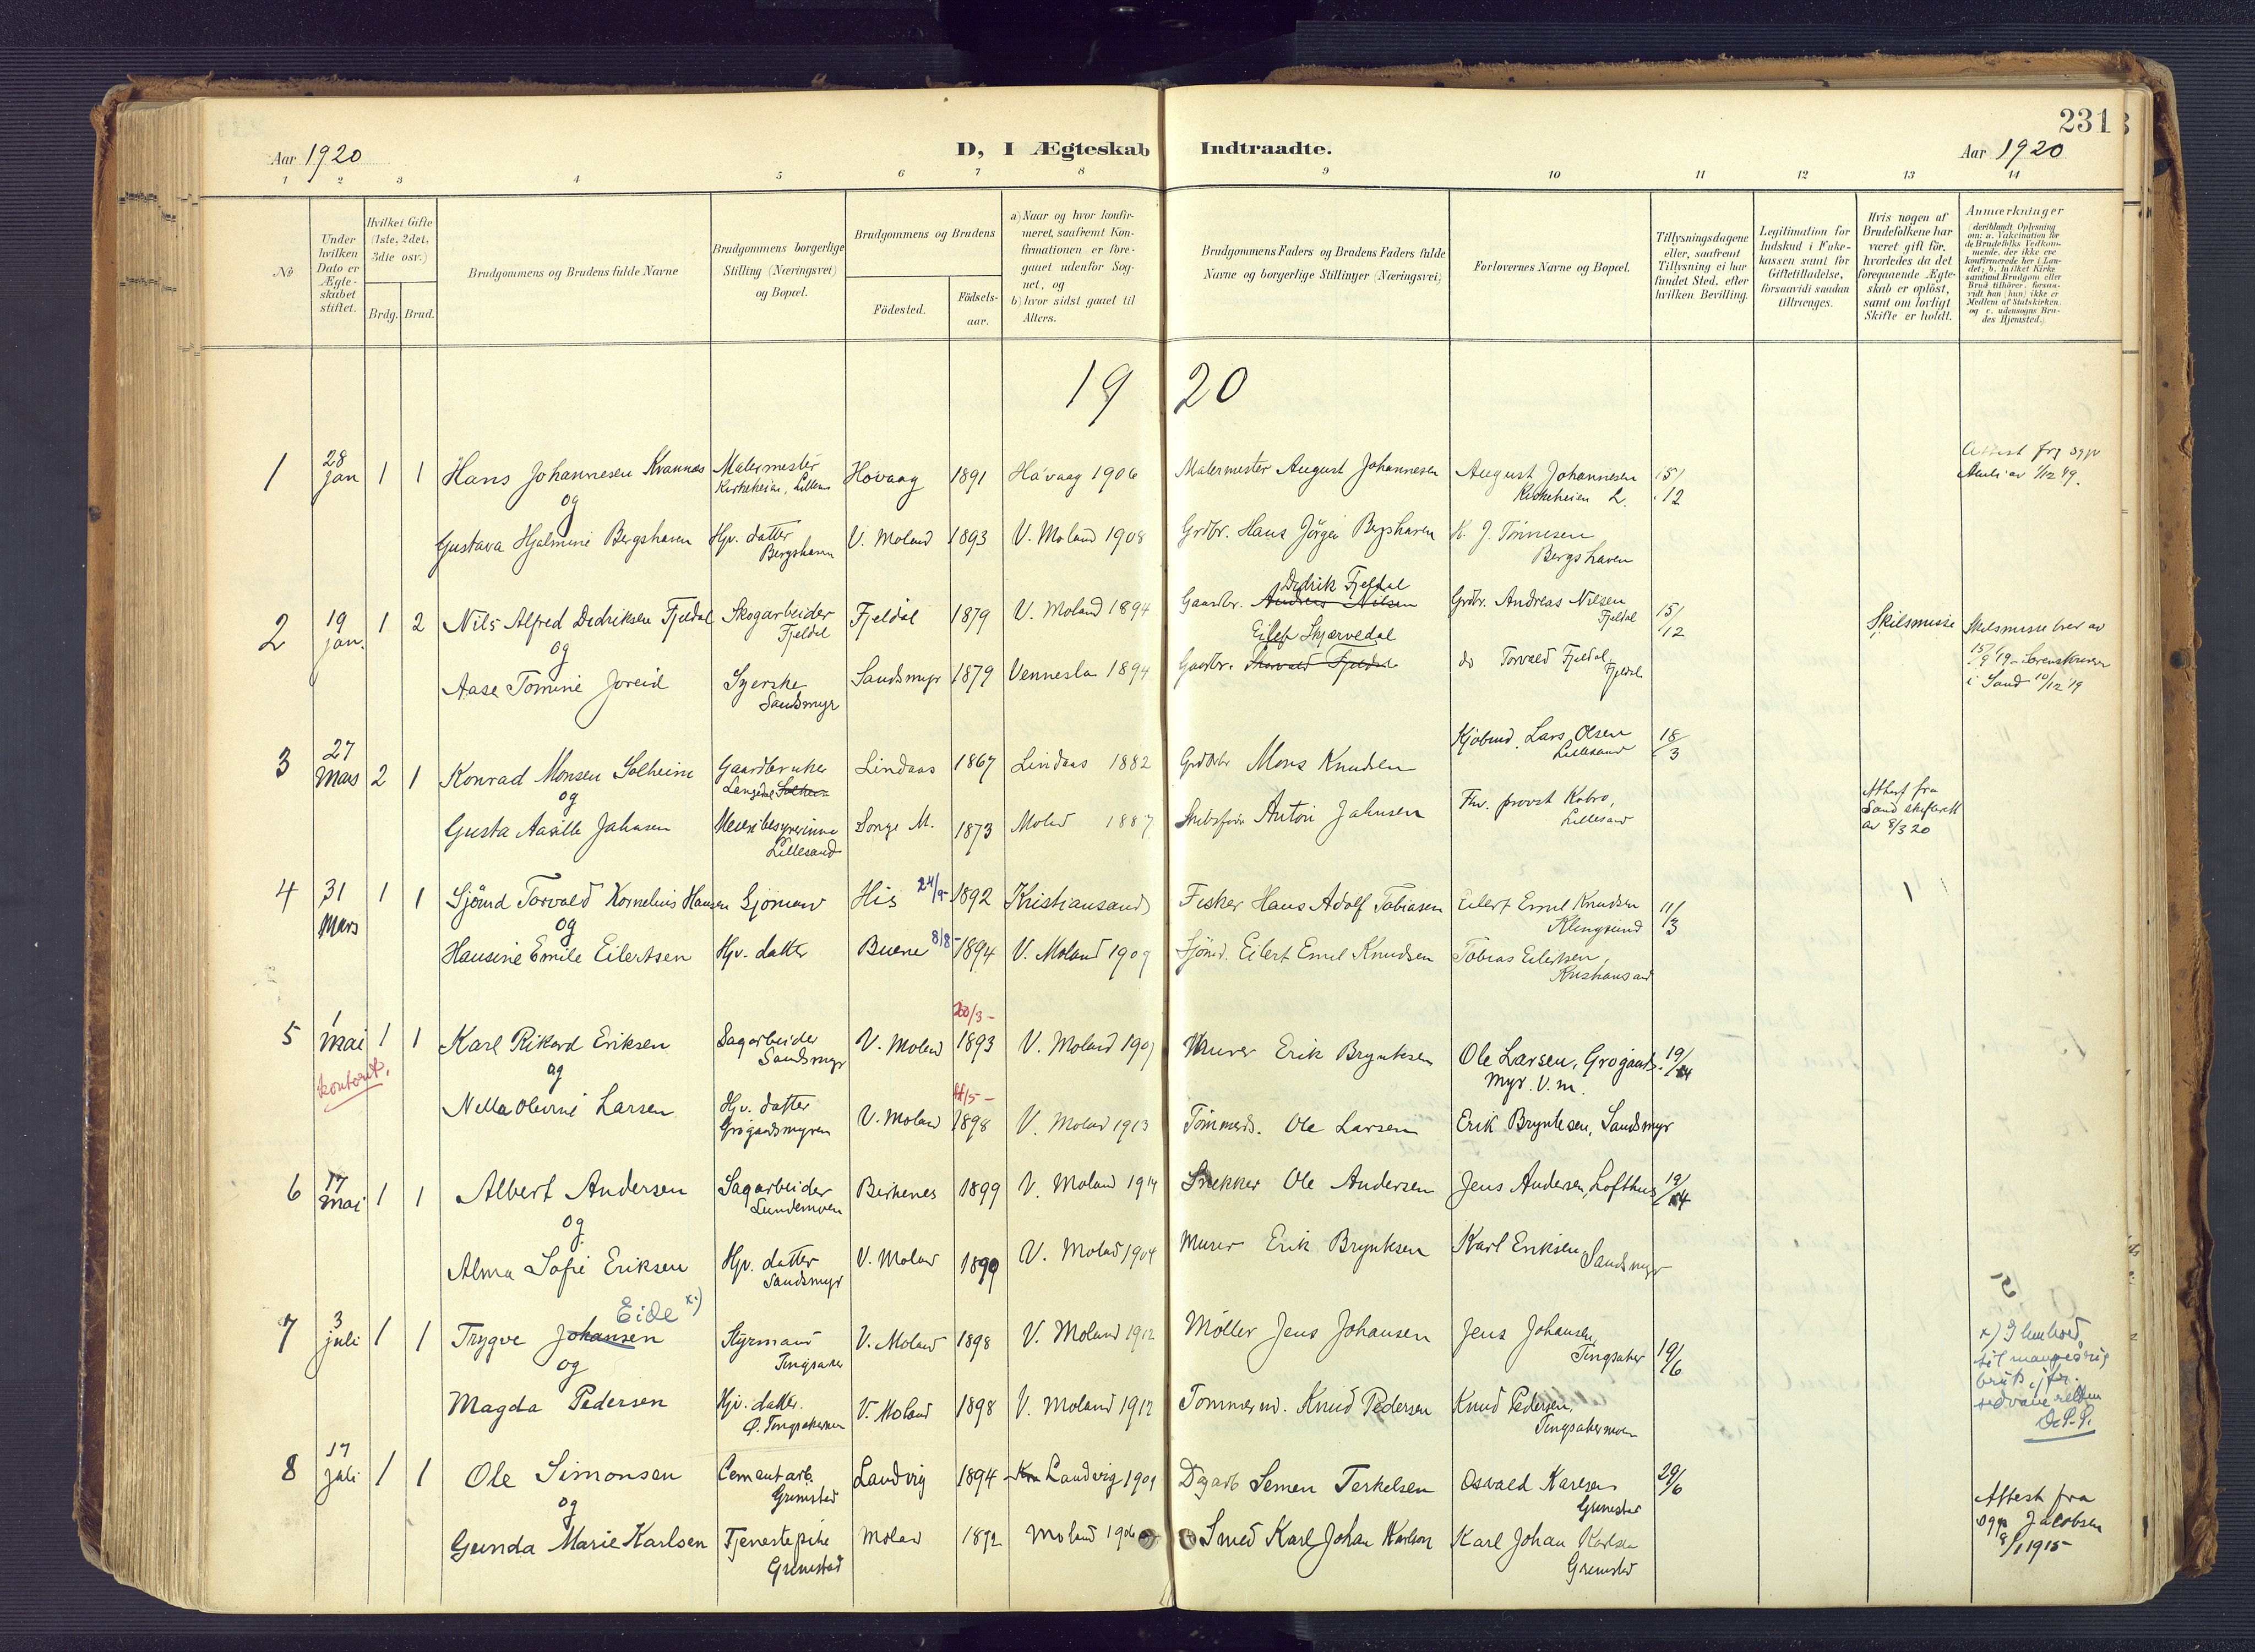 231
Aar 1920
D, I Ægteskab Indtraadte.
Aar 1920
1 2 3 4 5 6 7 8 9 10 11 12 13 14
No
Under hvilken Dato er Ægteskabet stiftet.
Hvilket Gifte (1ste, 2det, 3die osv.)
Brdg. Brud.
Brudgommens og Brudens fulde Navne
Brudgommens borgerlige Stilling (Næringsvei) og Bopæl.
Brudgommens og Brudens
Födested.
Födselsaar.
a) Naar og hvor konfirmeret, saafremt Konfirmationen er foregaaet udenfor Sognet, og
b) hvor sidst gaaet til Alters.
Brudgommens Faders og Brudens Faders fulde Navne og borgerlige Stillinger (Næringsvei)
Forlovernes Navne og Bopæl.
Tillysningsdagene eller, saafremt Tillysning ei har fundet Sted, efter hvilken Bevilling.
Legitimation for Indskud i Enkekassen samt for Giftetilladelse, forsaavidt saadan tiltrænges.
Hvis nogen af Brudefolkene har været gift för, hvorledes da det foregaaende Ægteskab er oplöst, samt om lovligt Skifte er holdt.
Anmærkninger (deriblandt Oplysning om: a. Vaksination for de Brudefolks Vedkommende, der ikke ere konfirmerede her i Landet; b. hvilket Kirkesamfund Brudgom eller Brud tilhører, forsaavidt han (hun) ikke er Medlem af Statskirken, og c. udensogns Brudes Hjemsted.)
19 20
1 28 Jan 1 1 Hans Johannesen Kvannes Malermester Kirkeheien, Lillesand Høvaag 1891 Høvaag 1906 Malermester August Johannesen August Johannesen Kirkeheien L. 15/12 Attest fra sgpr av 1/12 19.
og
Gustava Hjalmine Bergshaven Hjv. datter Bergshaven V. Moland 1893 V. Moland 1908 Grdbr. Hans Jörgen Bergshaven K. J. Tönnesen Bergshaven
2 19 jan. 1 2 Nils Alfred Dedriksen Fjeldal Skogarbeider Fjeldal Fjeldal 1879 V. Moland 1894 Gaardbr. Andreas Nilsen Dedrik Fjeldal Grdbr. Andreas Nilsen Fjeldal 15/12 Skilsmisse Skilsmisse brev av 15/9 19 - Sorenskriveren i Sand 10/12 19
og
Aase Tomine Joreid Syerske Sandsmyr Sandsmyr 1879 Vennesla 1894 Gaardbr. Thorvald Fjeldal Eilef Skjærvedal do Torvald Fjeldal, Fjeldal
3 27 Mars 2 1 Konrad Monsen Solheim Gaardbruker Langedal Solheim Lindaas 1867 Lindaas 1882 Grdbr Mons Knudsen Kjöbmd. Lars Olsen Lillesand 18/3 Attest fra Sand skifterett av 8/3 20
og
Gusta Aasille Jahnsen Meieribestyrerinne Lillesand Songe M. 1873 Molad 1887 Skibsfører Anton Jahnsen Fhv. provst Kobro, Lillesand
4 31 Mars 1 1 Sjömd Torvald Kornelius Hansen Sjömand His 24/9- 1892 Kristiansand Fisker Hans Adolf Tobiasen Eilert Emil Knudsen Klingsund 11/3
og
Hansine Emile Eilertsen Hjv. datter Buene 8/8- 1894 V. Moland 1909 Sjömd. Eilert Emil Knudsen Tobias Eilertsen, Kristiansand
5 1 mai kontoret. 1 1 Karl Rikard Eriksen Sagarbeider Sandsmyr V. Moland 20/3- 1893 V. Moland 1907 Murer Erik Bryntesen Ole Larsen, Grogaardsmyr. V. m. 19/4
og
Nella Olevine Larsen Hjv. datter Grogaardsmyren V. Moland /5- 1898 V. Moland 1913 Tömmerm. Ole Larsen Erik Bryntesen, Sandsmyr
6 17 mai 1 1 Albert Andersen Sagarbeider Lundemoen Birkenes 1899 V. Moland 1914 Snekker Ole Andersen Jens Andersen, Lofthus 19/4
og
Alma Sofie Eriksen Hjv. datter Sandsmyr V. Moland 1890 V. Moland 1904 Murer Erik Bryntesen Karl Eriksen, Sandsmyr
7 3 juli 1 1 Trygve Johansen Eide x) Styrmand Tingsaker V. Moland 1898 V. Moland 1912 Møller Jens Johansen Jens Johansen, Tingsaker 19/6 x) I henhold til mangeårig bruk, jfr. sedvaneretten
og
Magda Pedersen Hjv. datter. Ø. Tingsakermoen V. Moland 1898 V. Moland 1912 Tömmermd. Knud Pedersen Knud Pedersen, Tingsakermoen
8 17 juli 1 1 Ole Simonsen Cementarb. Grimstad Landvig 1894 Landvig 1909 Dagarb Semen Terkelsen Osvald Karlsen Grimstad 29/6 Attest fra sgpr Jacobsen 8/1 1915
og
Gunda Marie Karlsen Tjenestepike Grimstad Moland 1892 Moland 1906 Smed Karl Johan Karlsen Karl Johan Karlsen Grimstad